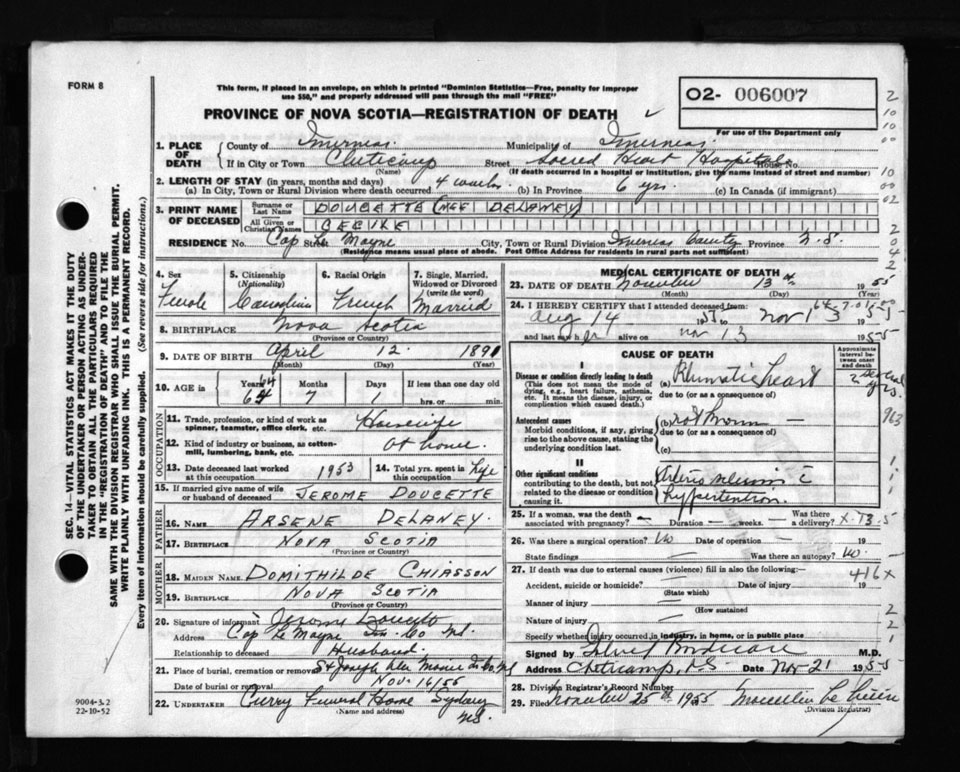 FORM 8
This form, if placed in an envelope, on which is printed "Dominion Statistics—Free, penalty for improper
use $50," and properly addressed will pass through the mail "FREE"
O2- 006007
PROVINCE OF NOVA SCOTIA—REGISTRATION OF DEATH
For use of the Department only
1. PLACE OF DEATH
County of Inverness Municipality of Inverness
If in City or Town Cheticamp Street Sacred Heart Hospital House No.
(Name) (If death occurred in a hospital or institution, give the name instead of street and number)
2. LENGTH OF STAY (in years, months and days)
(a) In City, Town or Rural Division where death occurred 4 weeks (b) In Province 6 yrs. (c) In Canada (if immigrant)
3. PRINT NAME OF DECEASED
Surname or Last Name DOUCETTE (NEE DELANEY)
All Given or Christian Names CECILE
RESIDENCE No. Street Cap Le Moyne City, Town or Rural Division Inverness County Province N.S.
(Residence means usual place of abode. Post Office Address for residents in rural parts not sufficient)
4. Sex Female
5. Citizenship (Nationality) Canadian
6. Racial Origin French
7. Single, Married, Widowed or Divorced (write the word) Married
8. BIRTHPLACE Nova Scotia
(Province or Country)
9. DATE OF BIRTH April 12. 1891
(Month) (Day) (Year)
10. AGE in Years 64 Months 7 Days 1 If less than one day old
hrs. or min.
OCCUPATION
11. Trade, profession, or kind of work as spinner, teamster, office clerk, etc. Housewife
12. Kind of industry or business, as cotton-mill, lumbering, bank, etc. At home.
13. Date deceased last worked at this occupation 1953
14. Total yrs. spent in this occupation Life
15. If married give name of wife or husband of deceased JEROME DOUCETTE
FATHER
16. NAME ARSENE DELANEY.
17. BIRTHPLACE NOVA SCOTIA
(Province or Country)
MOTHER
18. MAIDEN NAME DOMITHILDE CHIASSON
19. BIRTHPLACE NOVA SCOTIA
(Province or Country)
20. Signature of informant Jerome Doucet
Address Cap Le Moyne In. Co NS.
Relationship to deceased Husband.
21. Place of burial, cremation or removal St Joseph
Date of burial or removal Nov. 16/55
22. UNDERTAKER Curry Funeral Home Sydney
NS.
(Name and address)
MEDICAL CERTIFICATE OF DEATH
23. DATE OF DEATH November 13th 1955
(Month) (Day) (Year)
24. I HEREBY CERTIFY that I attended deceased from:
Aug 14 to Nov 13 1955
and last saw her alive on Nov 13 1955
CAUSE OF DEATH
Approximate interval between onset and death
I
Disease or condition directly leading to death
(This does not mean the mode of dying, e.g., heart failure, asthenia, etc. It means the disease, injury, or complication which caused death.)
(a) Rhumatic heart several yrs.
due to (or as a consequence of)
Antecedent causes
Morbid conditions, if any, giving rise to the above cause, stating the underlying condition last.
(b) not known —
due to (or as a consequence of)
(c)
963
II
Other significant conditions
contributing to the death, but not related to the disease or condition causing it.
hypertention.
25. If a woman, was the death associated with pregnancy? — Duration — weeks. — Was there a delivery?
26. Was there a surgical operation? No Date of operation — 19
State findings — Was there an autopsy? No.
27. If death was due to external causes (violence) fill in also the following:—
416x
Accident, suicide or homicide? Date of injury 19
(State which)
Manner of injury
(How sustained
Nature of injury
Specify whether injury occurred in industry, in home, or in public place
Signed by M.D.
Address Cheticamp, N.S Date Nov 21 1955
28. Division Registrar's Record Number
29. Filed November 25th 1955
(Division Registrar)
SEC. 14—VITAL STATISTICS ACT MAKES IT THE DUTY
OF THE UNDERTAKER OR PERSON ACTING AS UNDER-
TAKER TO OBTAIN ALL THE PARTICULARS REQUIRED
IN THE "REGISTRATION OF DEATH" AND TO FILE THE
SAME WITH THE DIVISION REGISTRAR WHO SHALL ISSUE THE BURIAL PERMIT.
WRITE PLAINLY WITH UNFADING INK. THIS IS A PERMANENT RECORD.
Every item of information should be carefully supplied. (See reverse side for instructions.)
9004-3.2
22-10-52